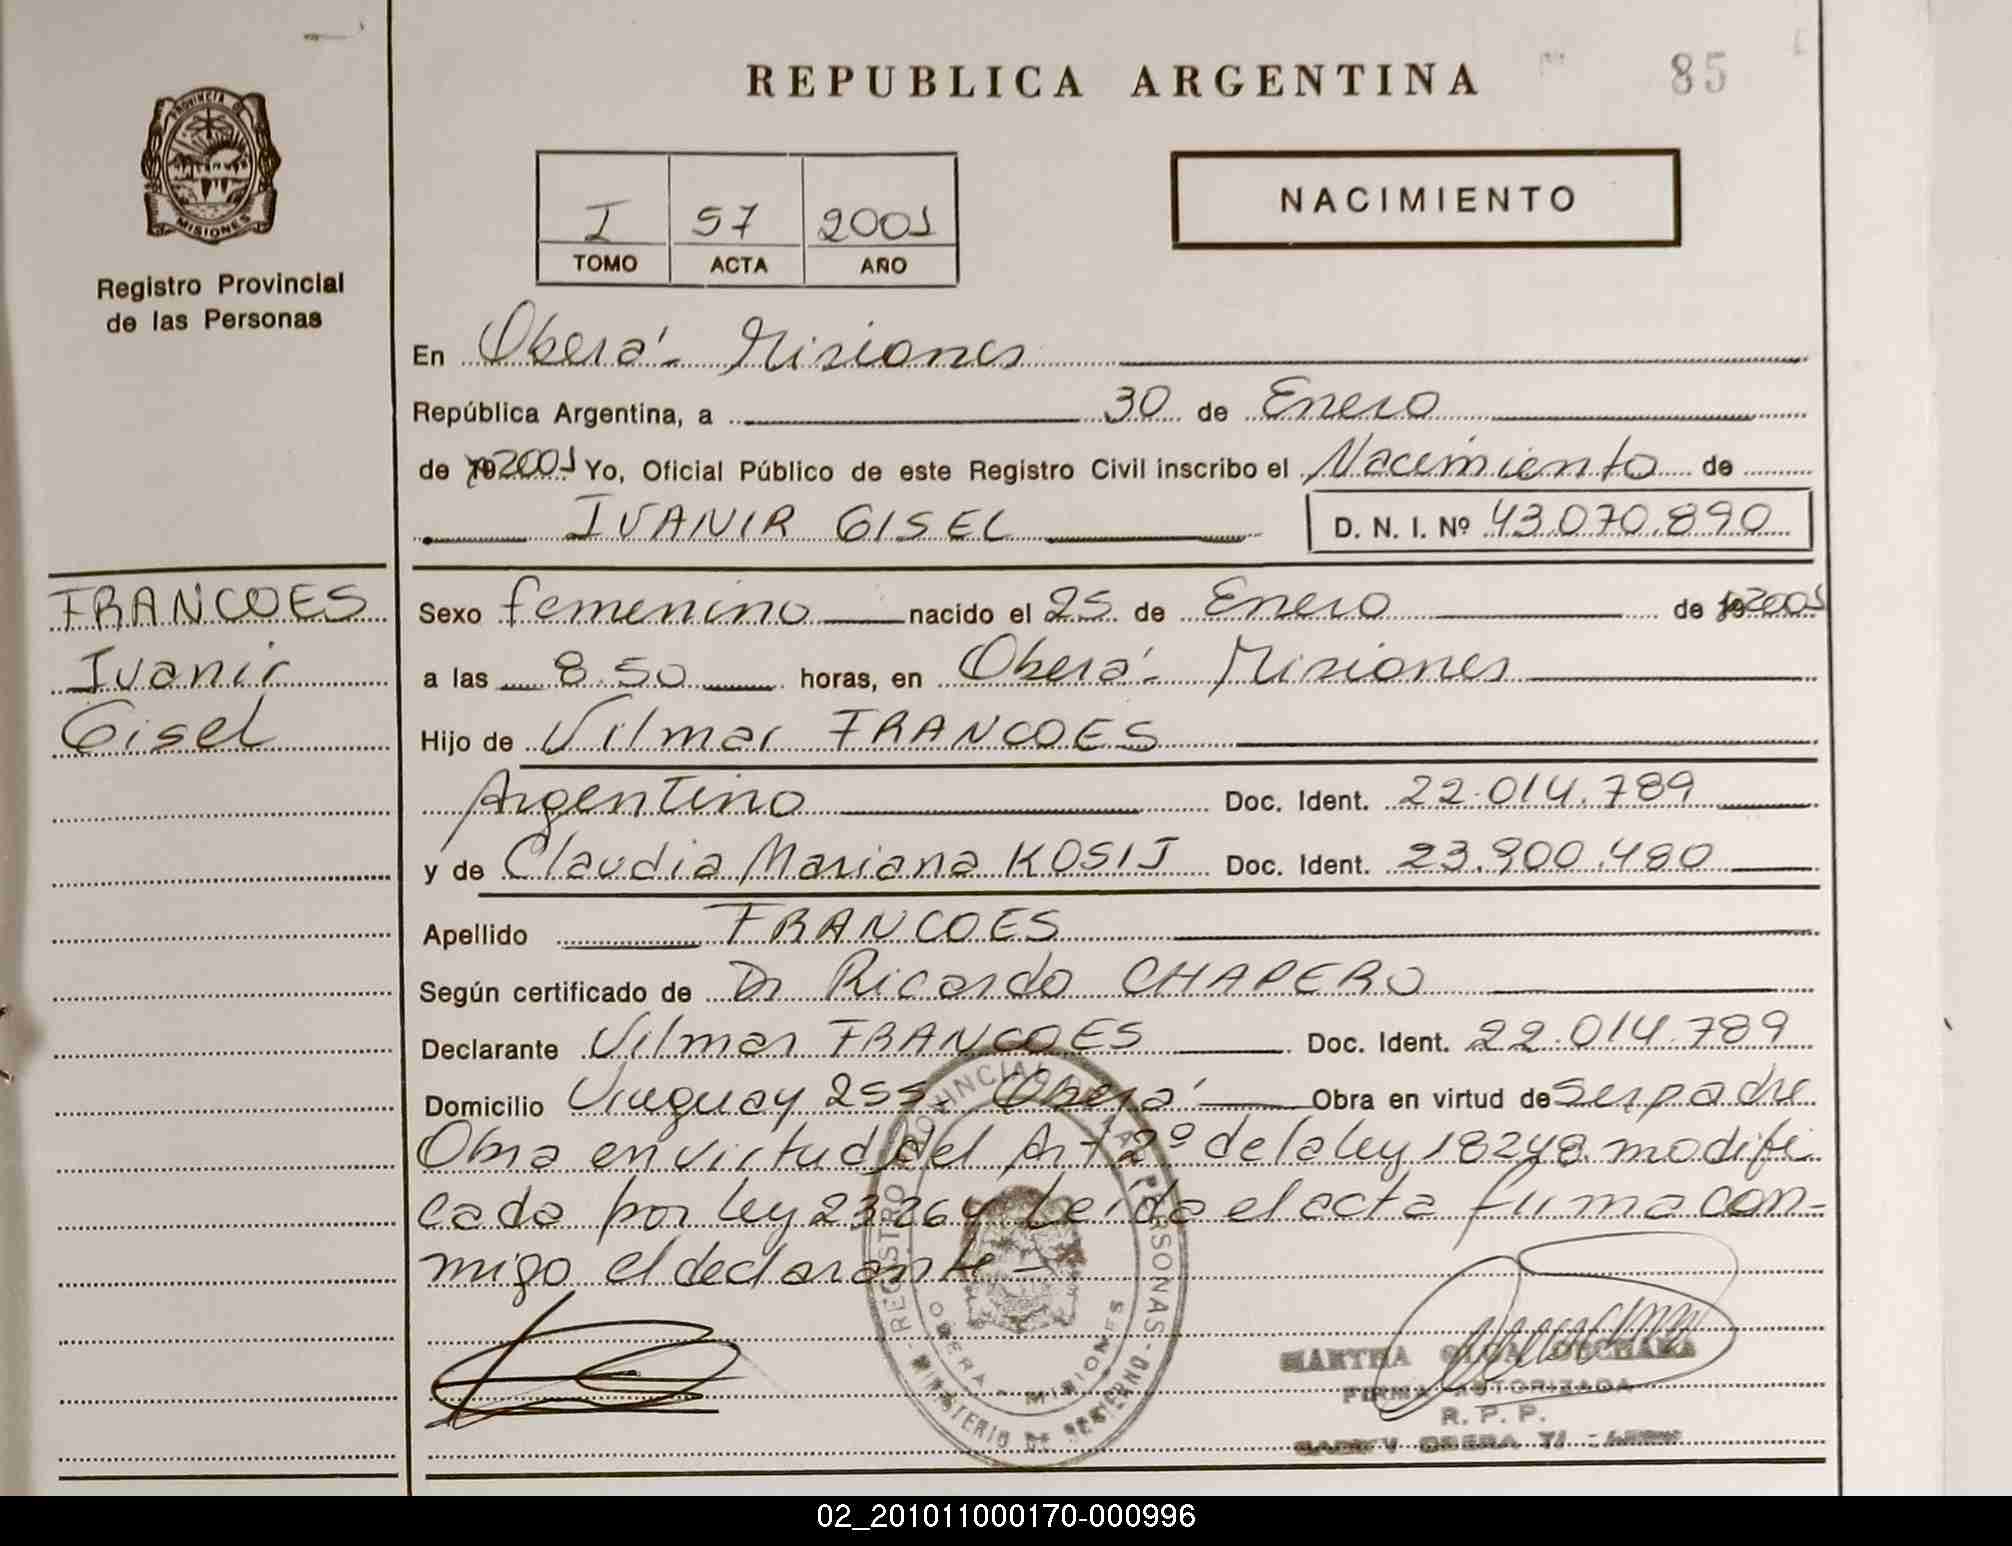 REPUBLICA ARGENTINA
85
PROVINCIA DE
MISIONES
Registro Provincial
de las Personas
I 57 2001
TOMO ACTA AÑO
NACIMIENTO
En Oberá - Misiones
República Argentina, a 30 de Enero
de 19 2001 Yo, Oficial Público de este Registro Civil inscribo el Nacimiento de
IVANIR GISEL D. N. I. Nº 43.070.890
FRANCOES
Ivanir
Gisel
Sexo femenino nacido el 25 de Enero de 19 2001
a las 8.50 horas, en Oberá - Misiones
Hijo de Vilmar FRANCOES
Argentino Doc. Ident. 22.014.789
y de Claudia Mariana KOSIJ Doc. Ident. 23.900.480
Apellido FRANCOES
Según certificado de Dr Ricardo CHAPERO
Declarante Vilmar FRANCOES Doc. Ident. 22.014.789
Domicilio Uruguay 255 - Oberá Obra en virtud de ser padre
Obra en virtud del Art 2º de la ley 18248 modifi
cada por ley 23.264 Leída el acta firma con-
migo el declarante -
REGISTRO PROVINCIAL DE LAS PERSONAS
OBERA - MISIONES
MINISTERIO DE GOBIERNO
MARTHA
FIRMA AUTORIZADA
R. P. P.
OBERA
02_201011000170-000996